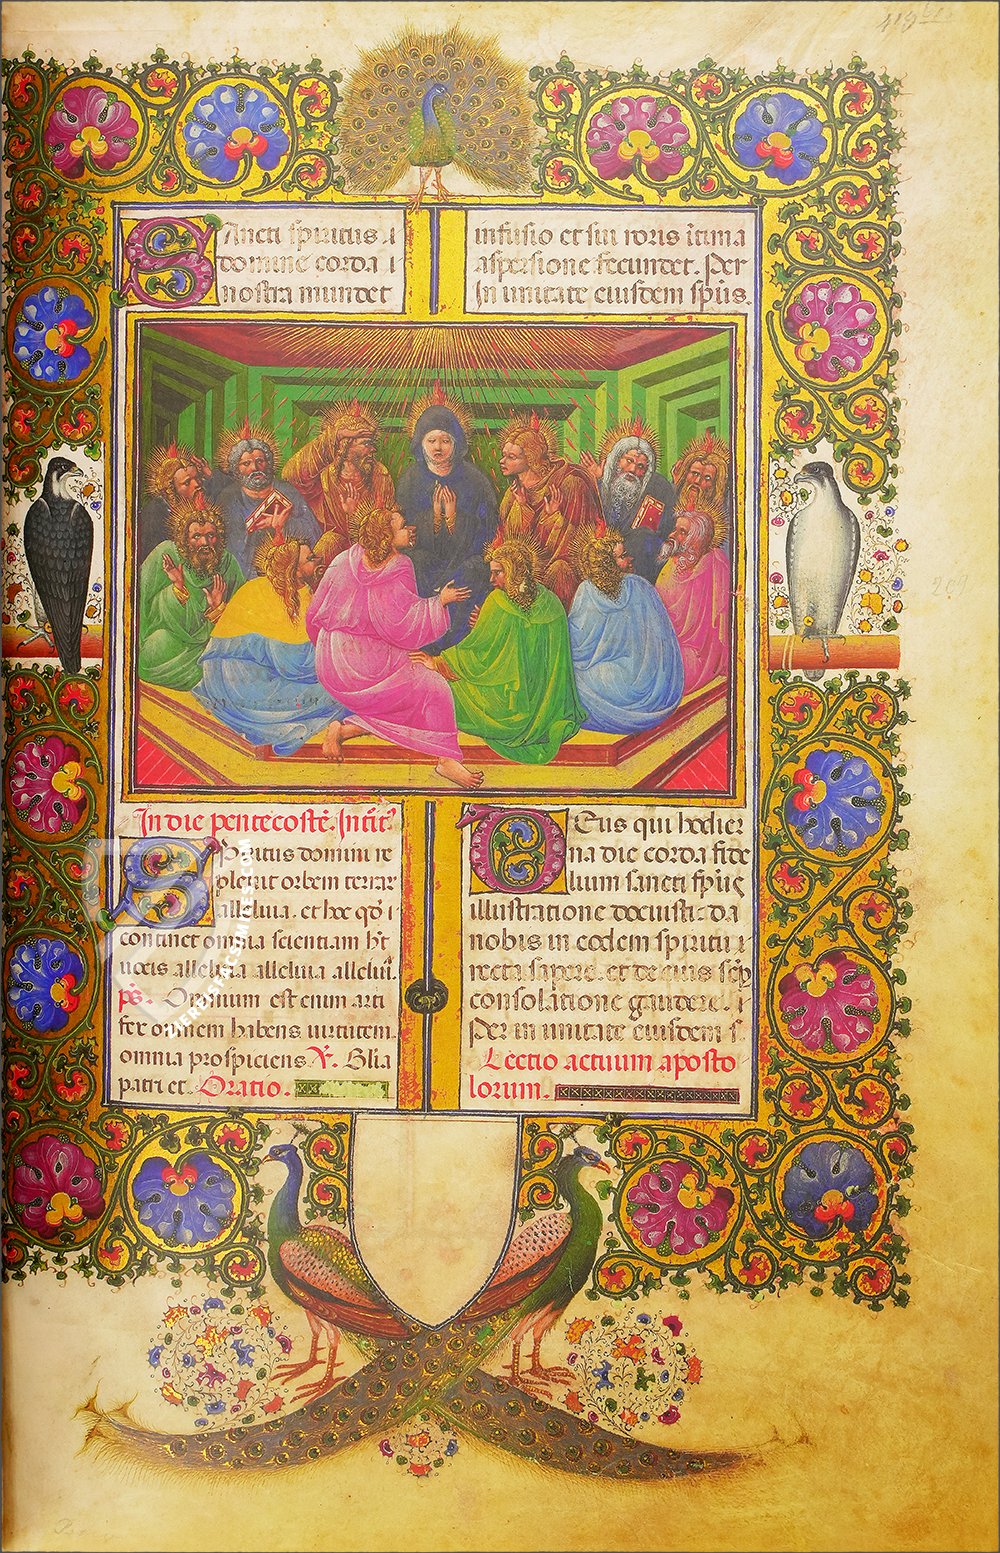 Sancti spiritus
domine corda
nostra mundet
infusio et sui roris itima
aspersione fecundet. Per
In unitate eiusdem spūs.
In die pentecostē. Intit
Spiritus domini re
plevit orbem terrar
alleluia. et hoc qd
continet omnia scientiam ht
vocis alleluia alleluia allelui.
ps. Omnium est enim arti
fex omnem habens virtutem.
omnia prospiciens V. Glia
patri et. Oratio.
Deus qui hodier
na die corda fide
lium sancti spūs
illustratione docuisti. da
nobis in eodem spiritu
recta sapere. et de eius
consolatione gaudere.
Per in unitate eiusdem s
Lectio actuum aposto
lorum.
VERSTFACSIMILE.COM